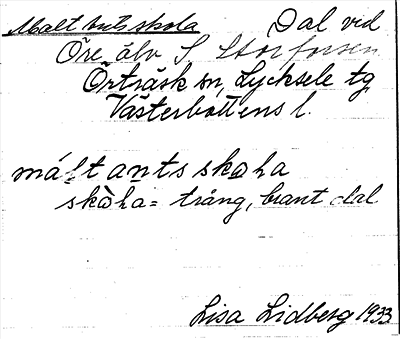 Maltantsskola Dal vid
Öre älv S Storforsen
Örträsk sn, Lycksele tg
Västerbottens l.
máltantsskaha
skàha = trång, brant dal
Lisa Lidberg 1933